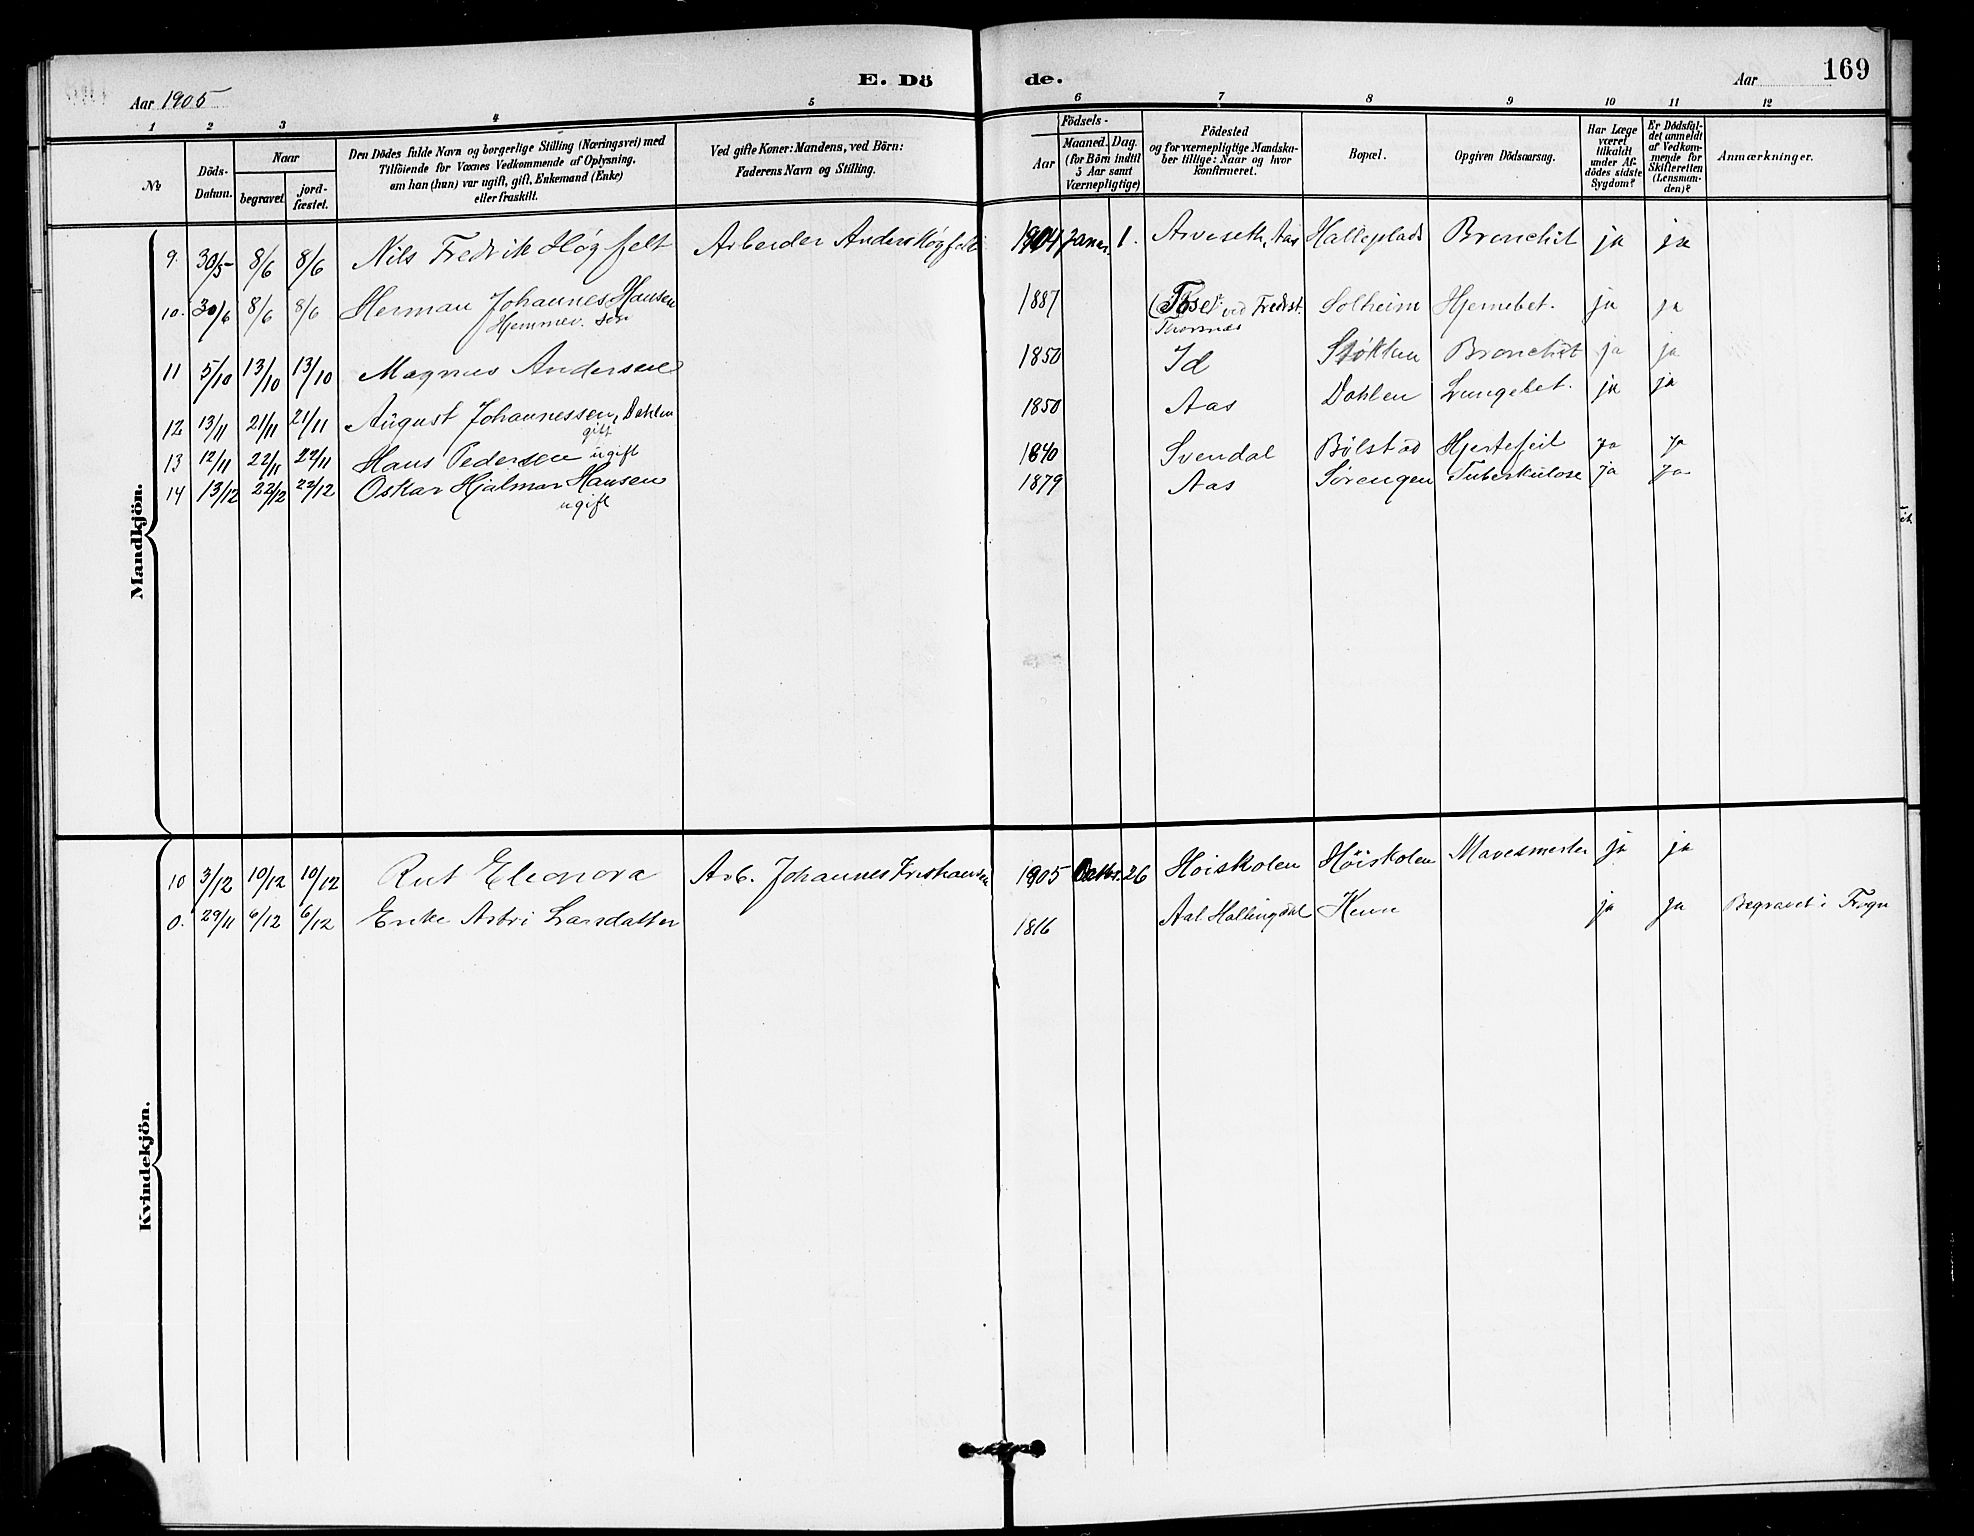 E. Dö de.
169
Aar 1905
Aar
1 2 3 4 5 6 7 8 9 10 11 12
№
Döds-Datum.
Naar
begravet.
jord-fæstet.
Den Dödes fulde Navn og borgerlige Stilling (Næringsvei) med
Tilföiende for Voxnes Vedkommende af Oplysning,
om han (hun) var ugift, gift, Enkemand (Enke)
eller fraskilt.
Ved gifte Koner: Mandens, ved Börn:
Faderens Navn og Stilling.
Födsels-
Aar
Maaned. Dag.
(for Börn indtil
5 Aar samt
Værnepligtige)
Födested
og for værnepligtige Mandska-
ber tillige: Naar og hvor
konfirmeret.
Bopæl.
Opgiven Dödsaarsag.
Har Læge
været
tilkaldt
under Af-
dödes sidste
Sygdom?
Er Dödsfal-
det anmeldt
af Vedkom-
mende for
Skifteretten
(Lensman-
den)?
Anmærkninger.
Mandkjön.
9. 30/5 8/6 8/6 Nils Fredrik Høgfelt Arbeider Anders Høgfelt 1904 Januar 1. Aas Halleplads Bronchit ja ja
10. 30/6 8/6 8/6 Herman Johannes Hansen 1887 ved Fredrst. Solheim Hjernebet. ja ja
Hjemmev. søn Thorsnæs
11 5/10 13/10 13/10 Magnus Andersen 1850 Id Støkken Bronchit ja ja
12 13/11 21/11 21/11 August Johannessen, Dahlen 1850 Aas Dahlen Lungebet. ja ja
gift
13 12/11 22/11 22/11 Hans Pedersen ugift 1840 Svendal Bølstad Hjertefeil ja ja
14 13/12 22/12 22/12 Oskar Hjalmar Hansen 1879 Aas Sørengen Tuberkulose ja ja
ugift
Kvindekjön.
10 3/12 10/12 10/12 Rut Eleonora Arb. Johannes Kristiansen 1905 Octbr. 26 Høiskolen Høiskolen ja ja
0. 29/11 6/12 6/12 Enke Astri Larsdatter 1816 Aal Hallingdal ja ja Begravet i Frogn